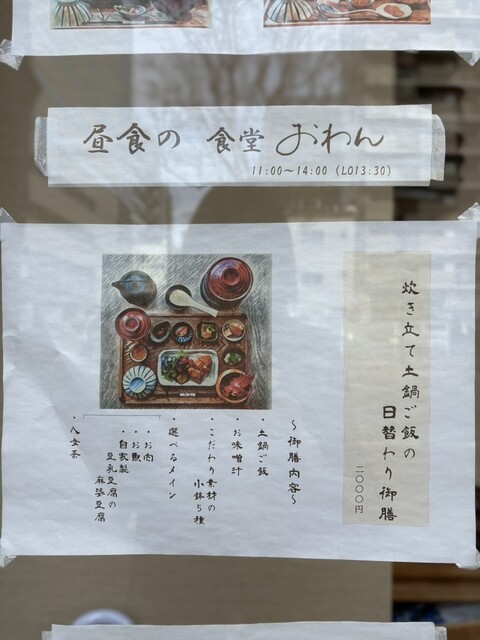 昼食の 食堂 おわん
11:00～14:00 (LO13:30)
炊き立て土鍋ご飯の
日替わり御膳
二〇〇〇円
～御膳内容～
・土鍋ご飯
・お味噌汁
・こだわり素材の
小鉢5種
・選べるメイン
・お肉
・お魚
・自家製
豆乳豆腐の
麻婆豆腐
・八女茶